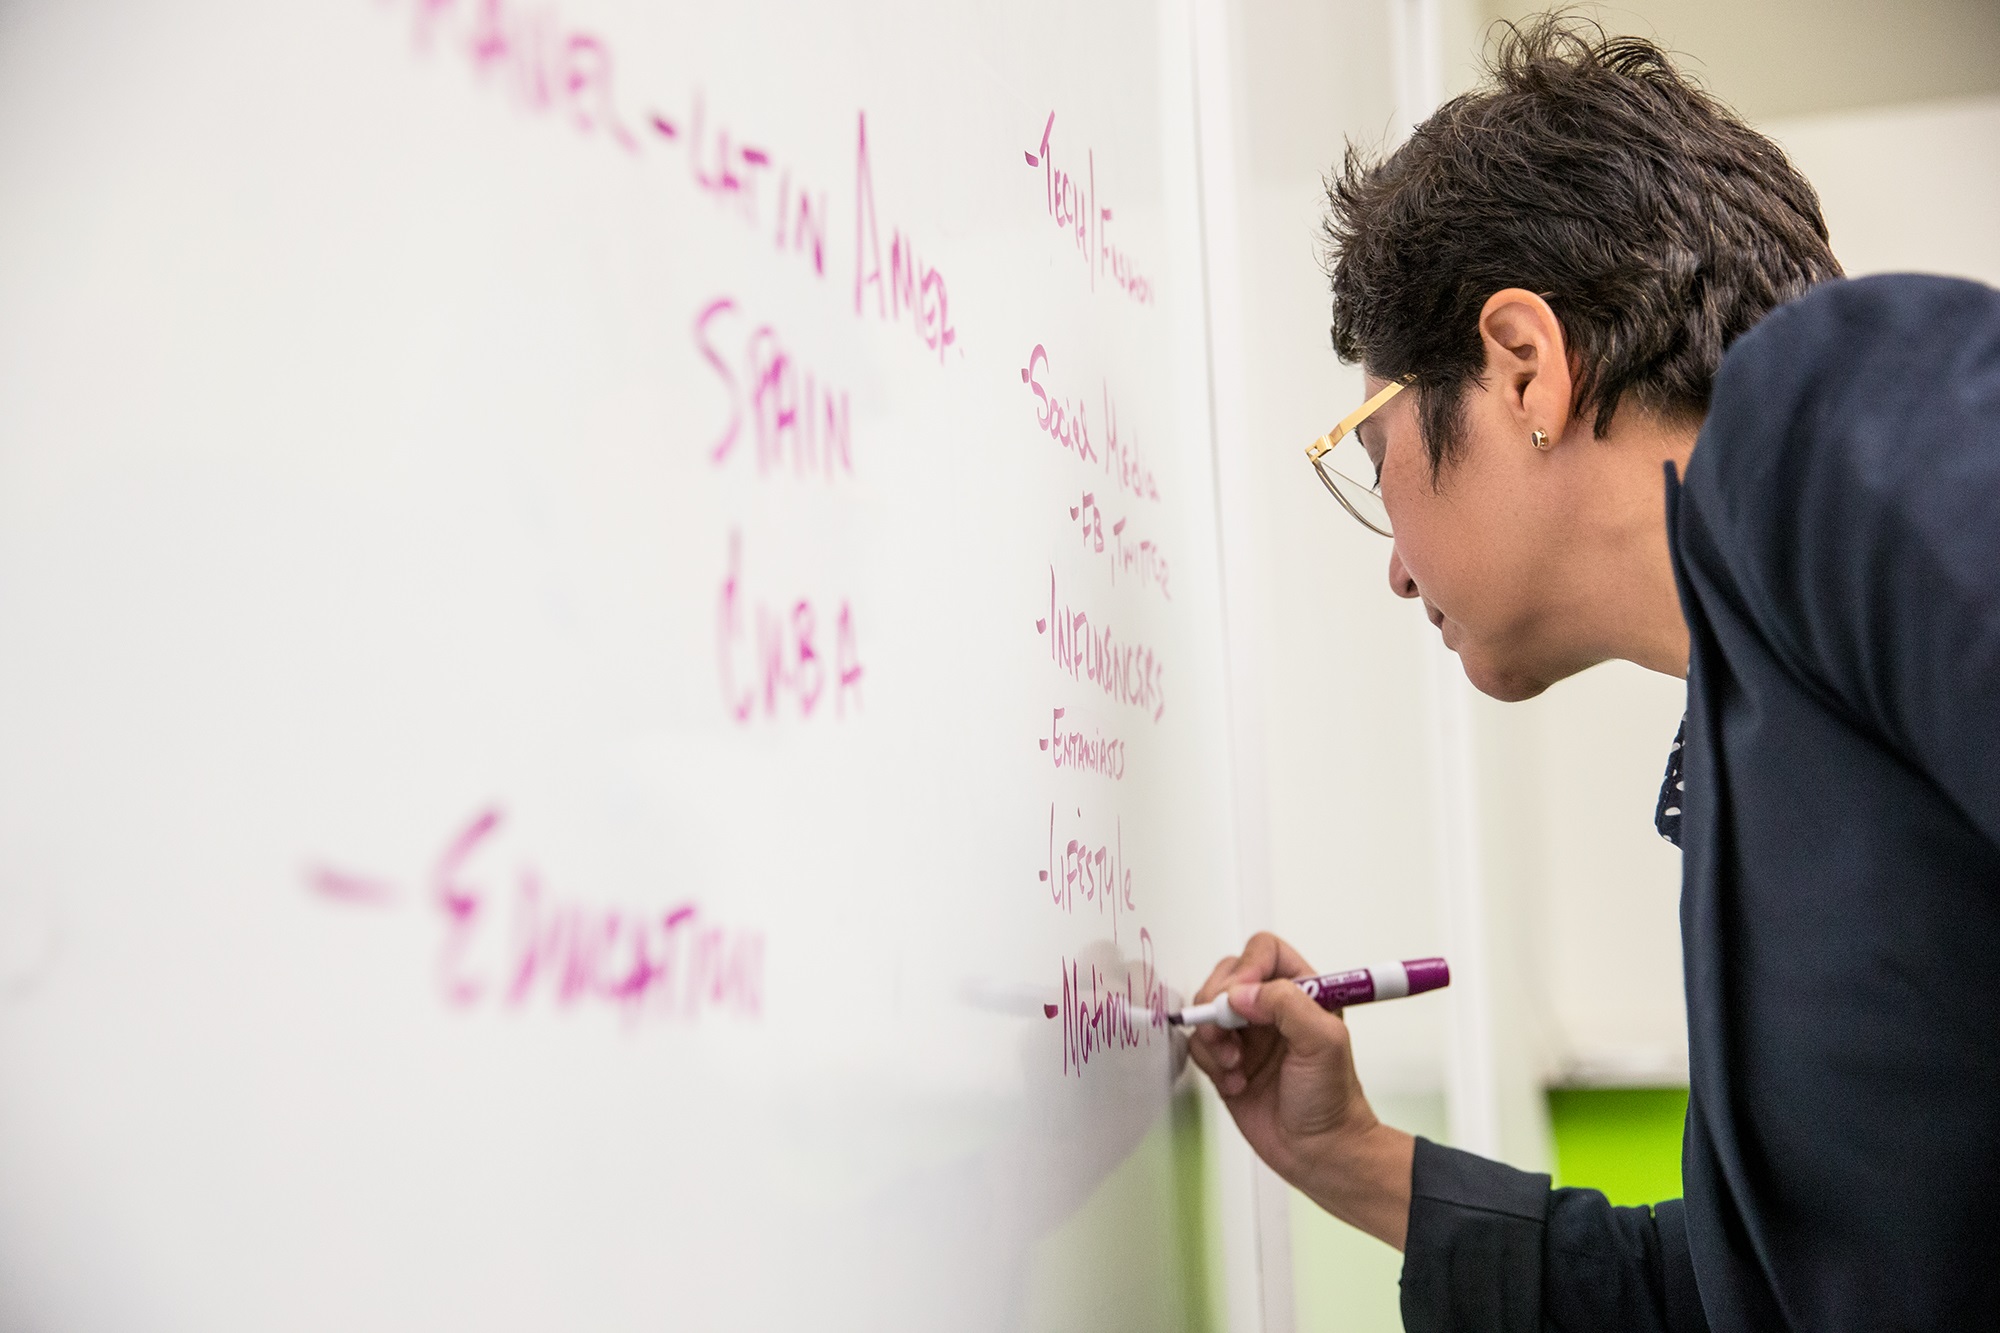 TRAVEL - LATIN AMER.
SPAIN
CUBA
- EDUCATION
- TECH/FASHION
- Social Media
- FB, TWITTER
- INFLUENCERS
- ENTHUSIASTS
- LIFESTYle
- National Par
EXPO